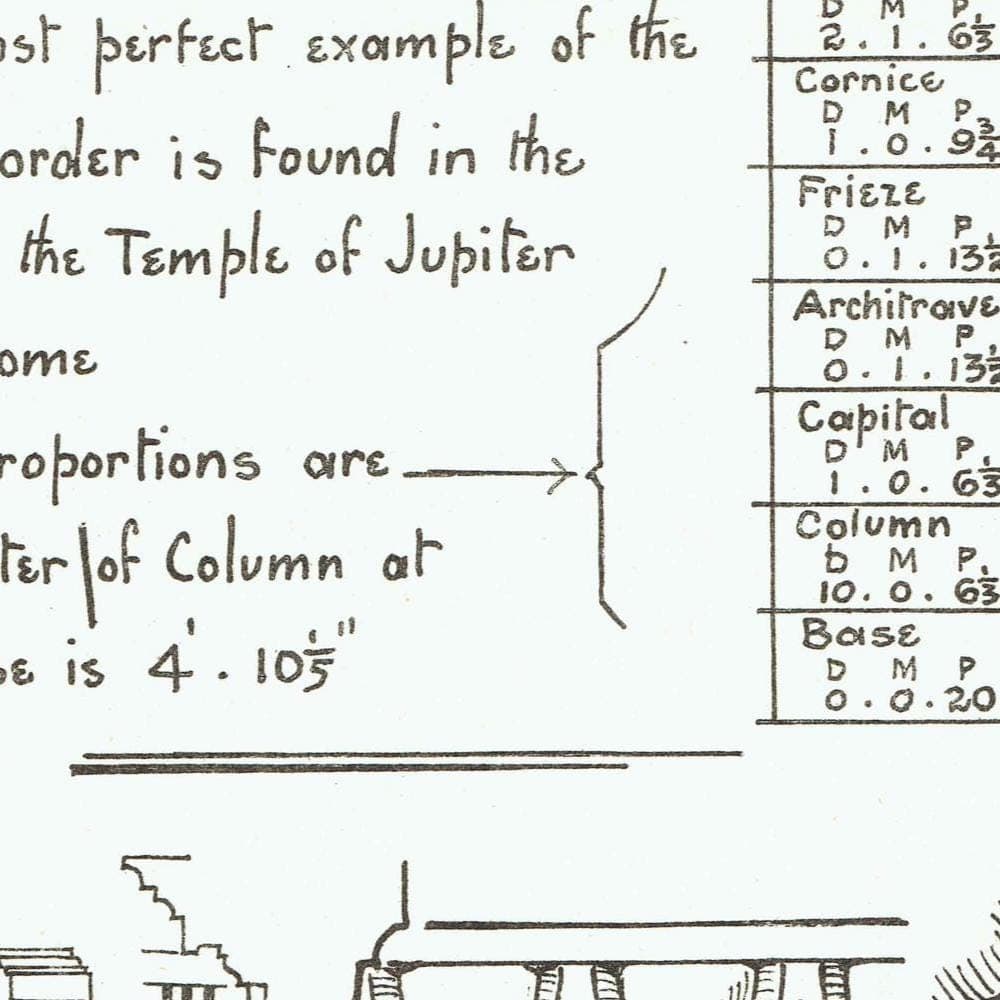 ost perfect example of the
order is found in the
the Temple of Jupiter
ome
roportions are
ter of Column at
se is 4' . 10⅕"
D M P.
2 . 1 . 6⅗
Cornice
D M P.
1 . 0 . 9¾
Frieze
D M P.
0 . 1 . 13½
Architrave
D M P.
0 . 1 . 13½
Capital
D M P.
1 . 0 . 6
Column
D M P.
10 . 0 . 6
Base
D M P
0 . 0 . 20